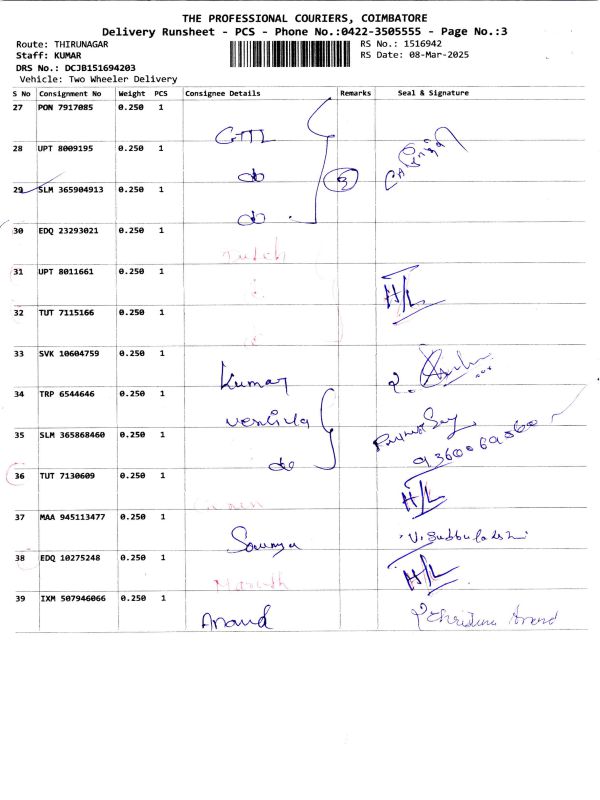 THE PROFESSIONAL COURIERS, COIMBATORE
Delivery Runsheet - PCS - Phone No.:0422-3505555 - Page No.:3
Route: THIRUNAGAR RS No.: 1516942
Staff: KUMAR RS Date: 08-Mar-2025
DRS No.: DCJB151694203
Vehicle: Two Wheeler Delivery
S No Consignment No Weight PCS Consignee Details Remarks Seal & Signature
27 PON 7917085 0.250 1 GTTL
28 UPT 8009195 0.250 1 do 3
29 SLM 365904913 0.250 1 do
30 EDQ 23293021 0.250 1
31 UPT 8011661 0.250 1 H/L
32 TUT 7115166 0.250 1
33 SVK 10604759 0.250 1 Kumar
34 TRP 6544646 0.250 1
35 SLM 365868460 0.250 1 do
36 TUT 7130609 0.250 1 H/L
37 MAA 945113477 0.250 1 Sowmya
38 EDQ 10275248 0.250 1 H/L
39 IXM 507946066 0.250 1 Anand